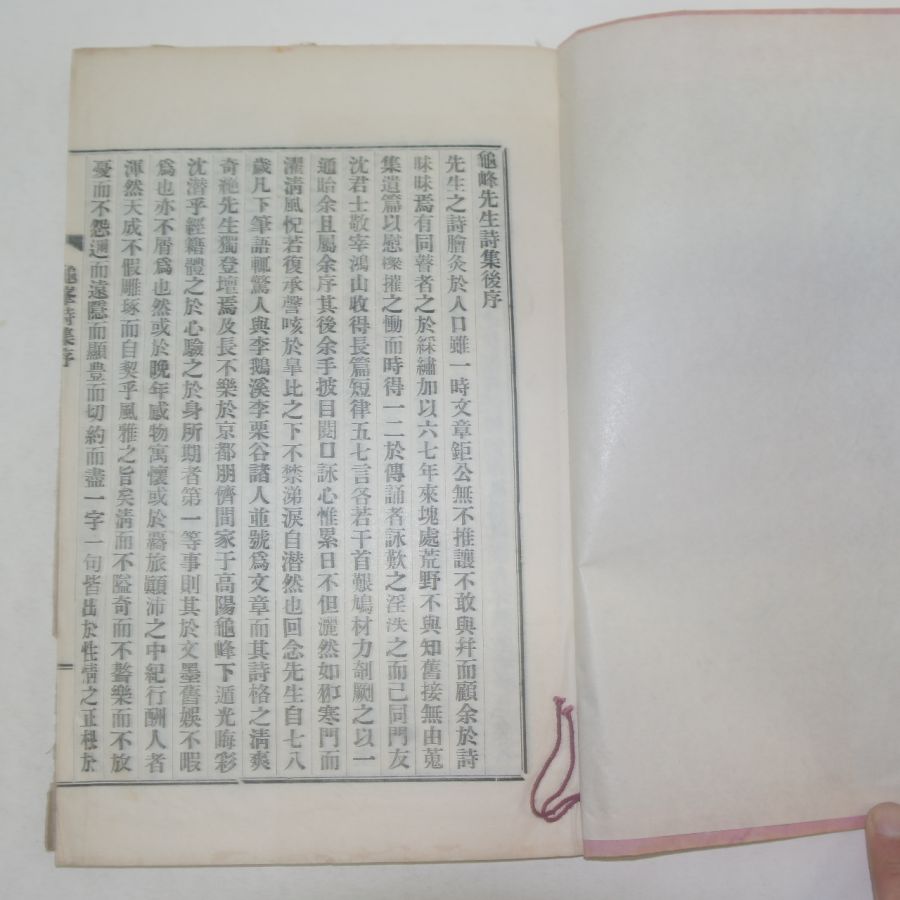 龜峰先生詩集後序
先生之詩膾炙於人口雖一時文章鉅公無不推讓不敢與幷而顧余於詩
昧昧焉有同瞽者之於綵繡加以六七年來塊處荒野不與知舊接無由蒐
集遺篇以慰樑摧之慟而時得一二於傳誦者詠歎之淫泆之而已同門友
沈君士敬宰鴻山收得長篇短律五七言各若干首艱鳩材力剞劂之以一
通貽余且屬余序其後余手披目閱口詠心惟累日不但灑然如 寒門而
濯淸風怳若復承謦咳於臯比之下不禁涕淚自潸然也回念先生自七八
歲凡下筆語輒驚人與李鵝溪李栗谷諸人並號爲文章而其詩格之淸爽
奇絶先生獨登壇焉及長不樂於京都朋儕間家于高陽龜峰下遁光晦彩
沈潛乎經籍體之於心驗之於身所期者第一等事則其於文墨舊娛不暇
爲也亦不屑爲也然或於晚年感物寓懷或於羇旅顚沛之中紀行酬人者
渾然天成不假雕琢而自契乎風雅之旨矣淸而不隘奇而不 樂而不放
憂而不怨邇而遠隱而顯豊而切約而盡一字一句皆出於性情之正根於
龜峯詩集序